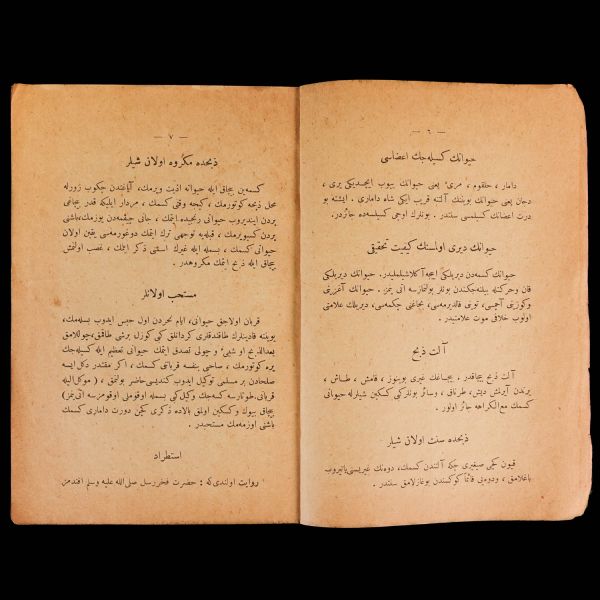 — ٦ —
حيوانك كسيله‌جك اعضاسی
دامار ، حلقوم ، مریء يعنی حيوانك ييوب ايچديكی یری ،
دجان يعنی حيوانك بوينك آلتنه قريب ايكی شاه داماری . ايشته بو
درت اعضانك كسيلمسی سنتدر . بونلرك اوچی كسيلسه‌ده جائزدر.
حيوانك ديری اولمسنك كيفيت تحقيقی
حيوانك كسمه‌دن ديريلكی ايجه آكلاشيلمليدر. حيوانك ديريلكی
قان وحركتله بيلنه‌جكندن بونلر بولنمازسه اتی ينمز. حيوانك آغزينی
وكوزينی آچمسی، تویی قالديرمه‌سی، بجاغنی چكمه‌سی، ديريلك علامتی
اولوب خلافی موت علامتيدر.
آلت ذبح
آلت ذبح بيچاقدر . بيچاغك غيری بوينوز ، قامش ، طاش ،
يرندن آيرلمش ديش، طرناق ، وسائر بونلر كی كسكين شيلرله حيوانی
كسمك مع الكراهه جائز اولور .
ذبحده سنت اولان شيلر
قيون كی صيغيری جكه آلتندن كسمك، دوه‌نك غيريسنی ياتيروب
باغلامق ، ودوه‌یی قائماً كوكسندن بوغازلامق سنتدر .
— ٧ —
ذبحده مكروه اولان شيلر
كسمه‌ين بيچاق ايله حيوانه اذيت ويرمك، آياغندن چكوب زورله
محل ذبحه كوتورمك ، كيجه وقتی كسمك ، مردار ايليكه قدر بيچاغی
يردن اينديروب حيوانی رنجيده ايتمك ، جانی چيقمه‌دن يوزمك، باشنی
يردن كسيويرمك ، قبله‌يه توجهی ترك ايتمك دوغورمه‌سی يقين اولان
حيوانی كسمك ، بسمله ايله غيرك اسمنی ذكر ايتمك ، غصب اولنمش
بيچاق ايله ذبح ايتمك مكروهدر .
مستحب اولانلر
قربان اولاجق حيوانی ، ايام نحردن اول حبس ايدوب بسله‌مك،
بوينه قادينلرك طاقندقلری كردانلق كی كوزل برشی طاقمق، چوللامق
بعدالذبح او شيئی و چولی تصدق ايتمك حيوانی تعظيم ايله كسيله‌جك
يره كوتورمك ، صاحبی بنفسه قربانی كسمك ، اكر مقتدر دكل ايسه
صلحادن بر مسلمی توكيل ايدوب كنديسی حاضر بولنمق ، ( موكل ايله
قربانی طوتارسه كسه‌جك وكيل كی بسمله اوقوملی اوقومزسه اتی ينمز)
بيچاق بيوك و كسكين اولمق بالاده ذكری كچن دورت داماری كسمك
باشنی اوزمه‌مك مستحبدر .
استطراد
روايت اولندی كه : حضرت فخر رسل صلی الله عليه وسلم افندمز